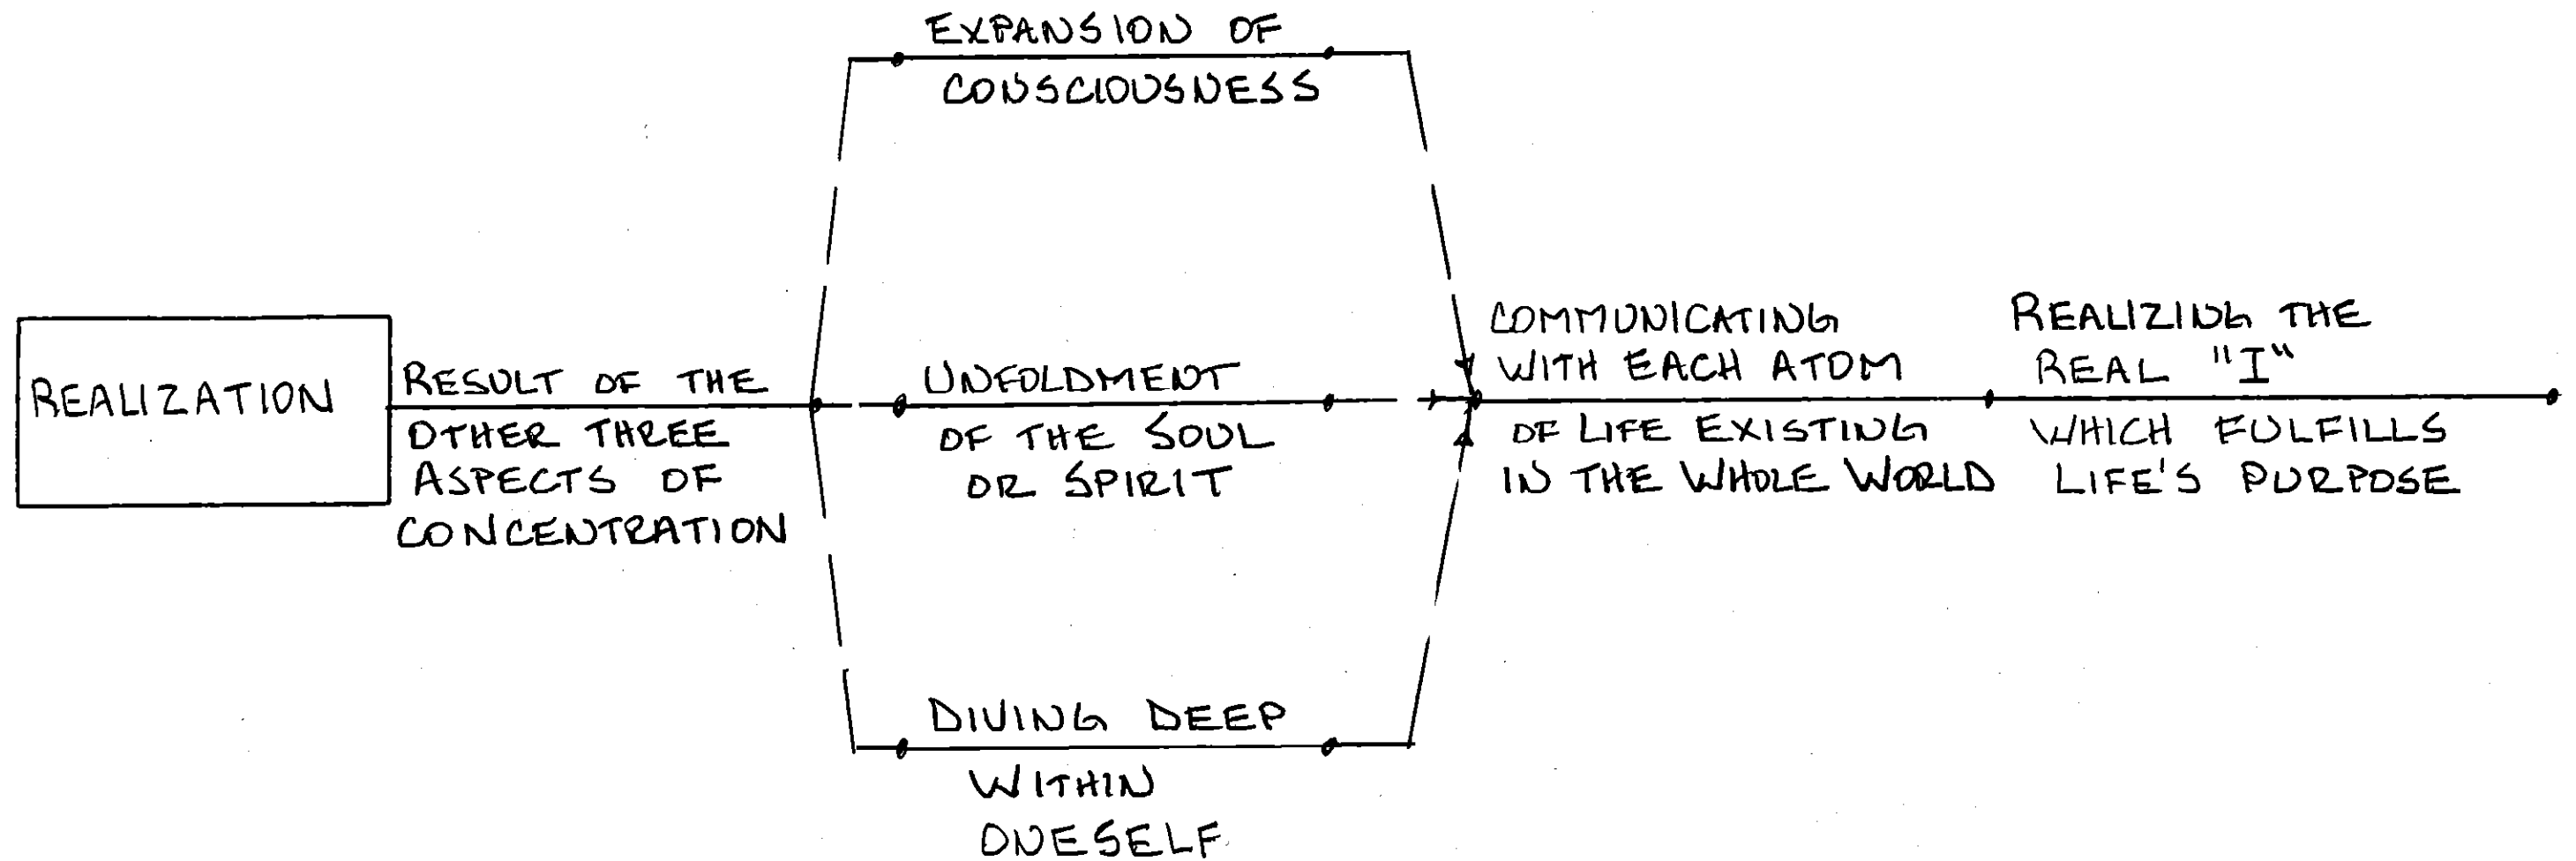 REALIZATION
RESULT OF THE
OTHER THREE
ASPECTS OF
CONCENTRATION
EXPANSION OF
CONSCIOUSNESS
UNFOLDMENT
OF THE SOUL
OR SPIRIT
DIVING DEEP
WITHIN
ONESELF
COMMUNICATING
WITH EACH ATOM
OF LIFE EXISTING
IN THE WHOLE WORLD
REALIZING THE
REAL "I"
WHICH FULFILLS
LIFE'S PURPOSE